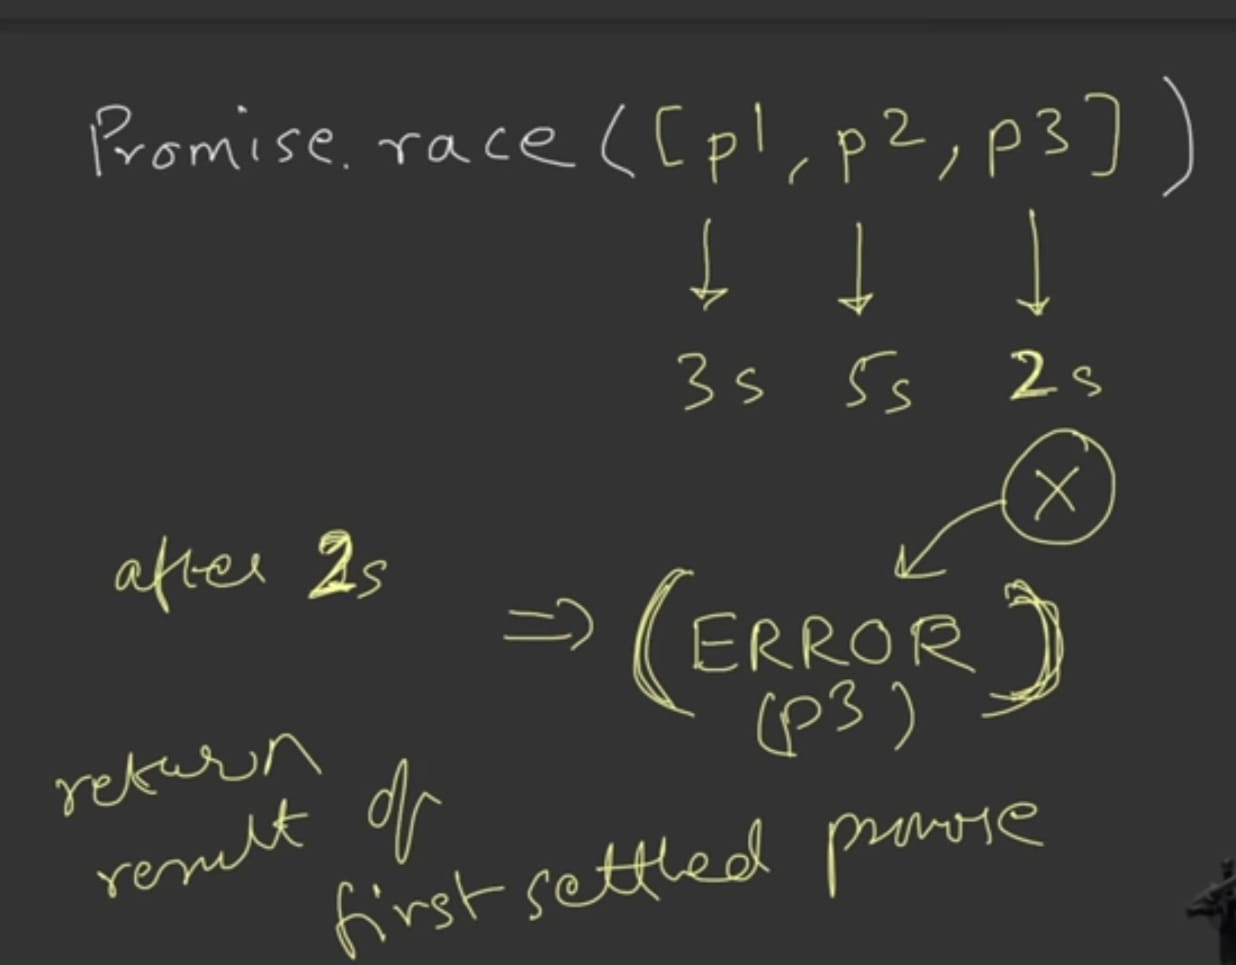 Promise.race([p1, p2, p3])
↓ ↓ ↓
3s 5s 2s
X
after 2s
=> (ERROR)
(p3)
return
result of
first settled promise